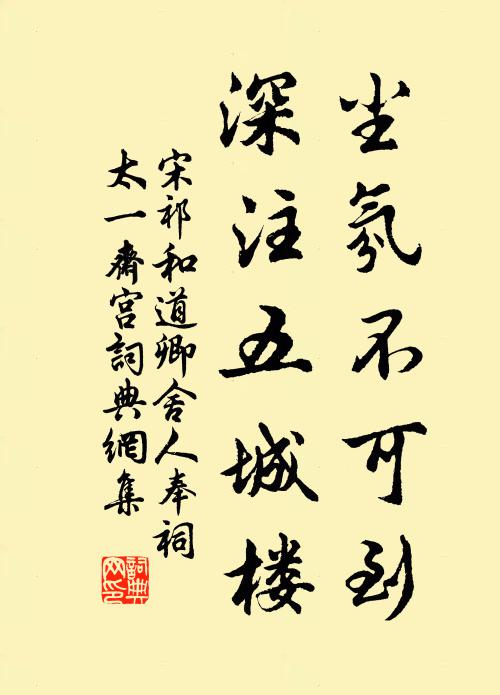 尘氛不可到
深注五城楼
宋祁和道卿舍人奉祠
太一齋宫詞典網集
詞典
网印